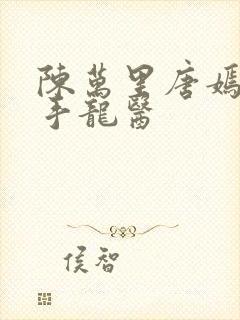 陳萬里唐嫣
手龍醫
侯智